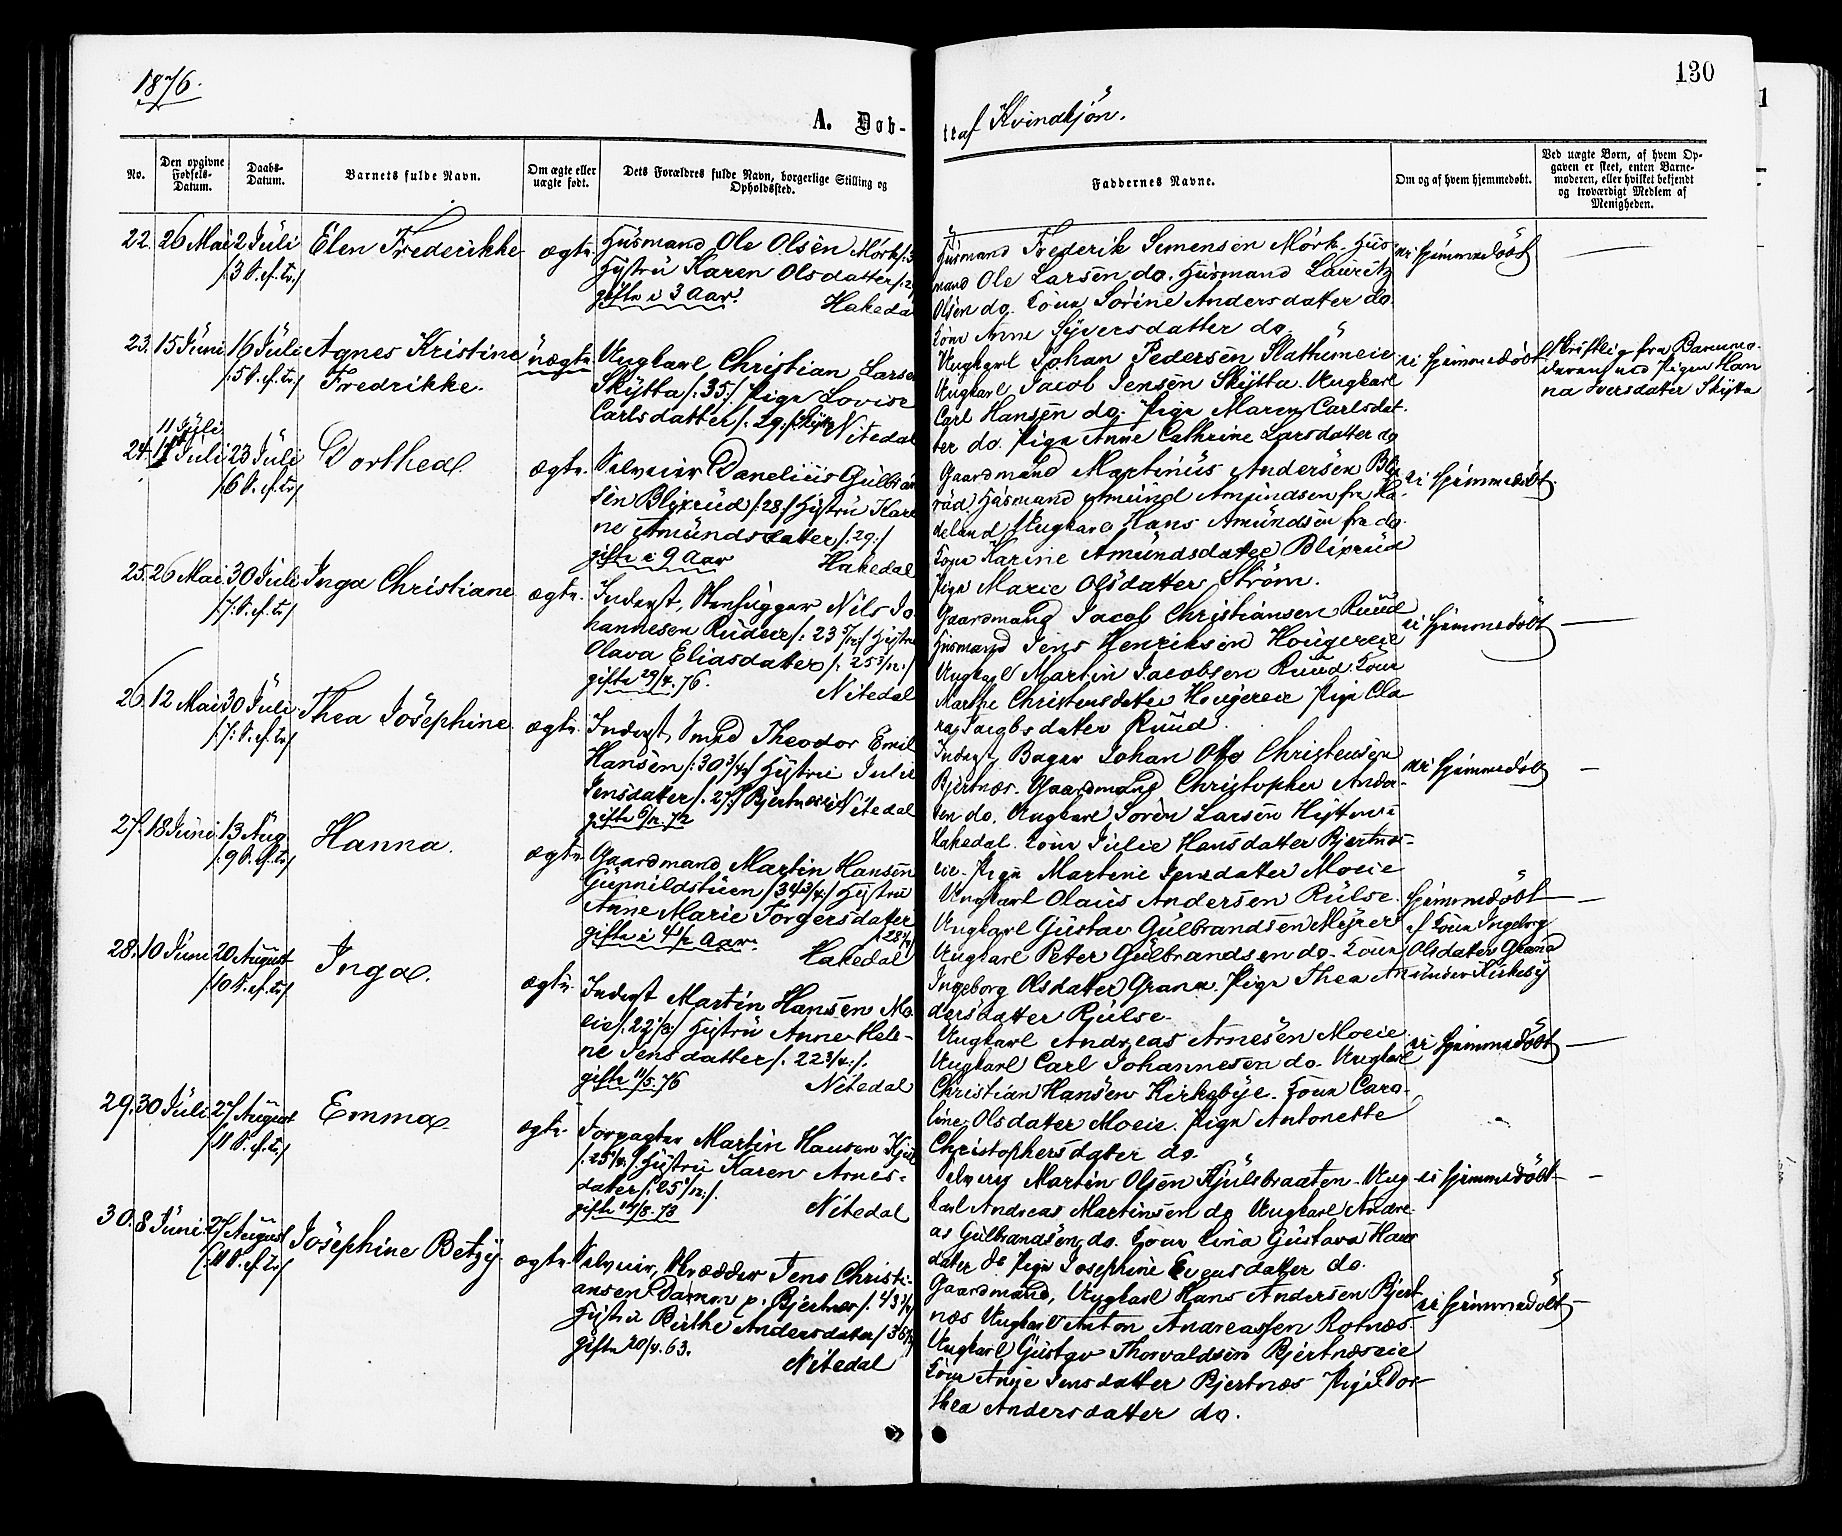 1876.
130
A. Døb-
te af Kvindkjøn.
No.
Den opgivne
Fødsels-
Datum.
Daabs-
Datum.
Barnets fulde Navn.
Om ægte eller
uægte født.
Dets Forældres fulde Navn, borgerlige Stilling og
Opholdssted.
Faddernes Navne.
Om og af hvem hjemmedøbt.
Ved uægte Børn, af hvem Op-
gaven er skeet, enten Barne-
moderen, eller hvilket bekjendt
og troværdigt Medlem af
Menigheden.
22. 26 Mai 2 Juli Elen Fredrikke ægte
/3 S. ef. tr/
Husmand Ole Olsen Mørk
Hustru Karen Olsdatter
gifte i 3 Aar. Hakedal
Husmand Frederik Semensen Mørk. Hus
mand Ole Larsen do. Husmand Lauritz
Olsen do. Kone Sørine Andersdatter do.
Kone Anne Syversdatter do.
ei hjemmedøbt
23. 15 Juni 16 Juli Agnes Kristine uægte
/5 S. ef. tr/ Fredrikke.
Ungkarl Christian Larsen
Skytta /:35:/ Pige Lovise
Carlsdatter /:29:/ Skytta Nitedal
Ungkarl Johan Pedersen Slattumeie
Ungkarl Jacob Jensen Skytta. Ungkarl
Carl Hansen do. Pige Maren Carlsdat-
ter do. Pige Anne Cathrine Larsdatter do
ei hjemmedøbt
Skriftlig fra Barnemo-
deren ved Pigen Han
na Iversdatter Skytta
11 Juli
24. 11 Juli 23 Juli Dorthea ægte
/6 S. ef. tr/
Selveier Danelius Gulbran
sen Blixrud /:28:/ Hustru Kare
ne Amundsdatter /:29:/
gifte i 9 Aar Hakedal
Gaardmand Martinus Andersen Blix
rud. Husmand Amund Amundsen fra Ha-
deland Ungkarl Hans Amundsen fra do.
Kone Karine Amundsdatter Blixrud
Pige Marie Olsdatter Strøm.
ei hjemmedøbt
25. 26 Mai 30 Juli Inga Christiane ægte
/7 S. ef. tr/
Inderst, Stenhugger Nils Jo
hannesen Rudeie /:23 5/12:/ Hustru
Olava Eliasdatter /:25 3/12:/
gifte 29/4.76. Nitedal
Gaardmand Jacob Christiansen Ruud
Husmand Jens Henriksen Hougereie
Ungkarl Martin Jacobsen Ruud Kone
Marthe Christensdatter Hougereie Pige Cla
ra Jacobsdatter Ruud
ei hjemmedøbt
26. 12 Mai 30 Juli Thea Josephine ægte
/7 S. ef. tr/
Inderst, Smed Theodor Emil
Hansen /:30 3/4:/ Hustru Julie
Jensdatter /:27:/ Bjertneseie Nitedal
gifte 6/12.72
Inderst, Bager Johan Otto Christensen
Bjertnæs. Gaardmand Christopher Ander-
sen do. Ungkarl Søren Larsen Hytten i
Hakedal. Kone Julie Hansdatter Bjertnæs-
eie. Pige Martine Jensdatter Moeie
ei hjemmedøbt
27. 18 Juni 13 Aug. Hanna. ægte
/9 S. ef. tr/
Gaardmand Martin Hansen
Gunnildstuen /34 3/4:/ Hustru
Anne Marie Torgersdatter
gifte i 4 1/2 Aar. Hakedal
Ungkarl Olaus Andersen Rülse.
Ungkarl Gustav Gulbrandsen Myrer
Ungkarl Peter Gulbrandsen do. Kone
Ingeborg Olsdatter Grana. Pige Thea An
dersdatter Rülse.
hjemmedøbt
af Kone Ingeborg
Olsdatter Grana
under Kirkeby
28. 10 Juni 20 August Inga. ægte
/10 S. ef. tr/
Inderst Martin Hansen Mo
eie /:22 1/3:/ Hustru Anne Hele-
ne Jensdatter /:22 3/4:/.
gifte 11/5.76 Nitedal
Ungkarl Andreas Arnesen Moeie.
Ungkarl Carl Johannesen do. Ungkarl
Christian Hansen Kirkebye. Kone Caro-
line Olsdatter Moeie. Pige Antonette
Christophersdatter do.
ei hjemmedøbt
29. 30 Juli 27 August Emma ægte
/11 S. ef. tr/
Forpagter Martin Hansen Kjül
Hustru Karen Arnes-
datter /:25 1/12:/.
Nitedal
Selveier Martin Olsen Kjülsbraaten. Ung
karl Andreas Martinsen do Ungkarl Andre-
as Gulbrandsen do. Kone Lina Gustava Hans
datter do Pige Josephine Evensdatter do.
ei hjemmedøbt
30. 8 Juni 27 August Josephine Betzy ægte
/11 S. ef. tr/
Selveier, Skrædder Jens Christi-
ansen Dammen p. Bjertnæs
Hustru Birthe Andersdatter
gifte 20/4.63. Nitedal
Gaardmand, Ungkarl Hans Andersen Bjert
næs Ungkarl Anton Andreassen Rotnæs.
Ungkarl Gustav Thorvaldsen Bjertnæseie
Kone Anne Jensdatter Bjertnæs Pige Dor-
thea Andersdatter do.
ei hjemmedøbt